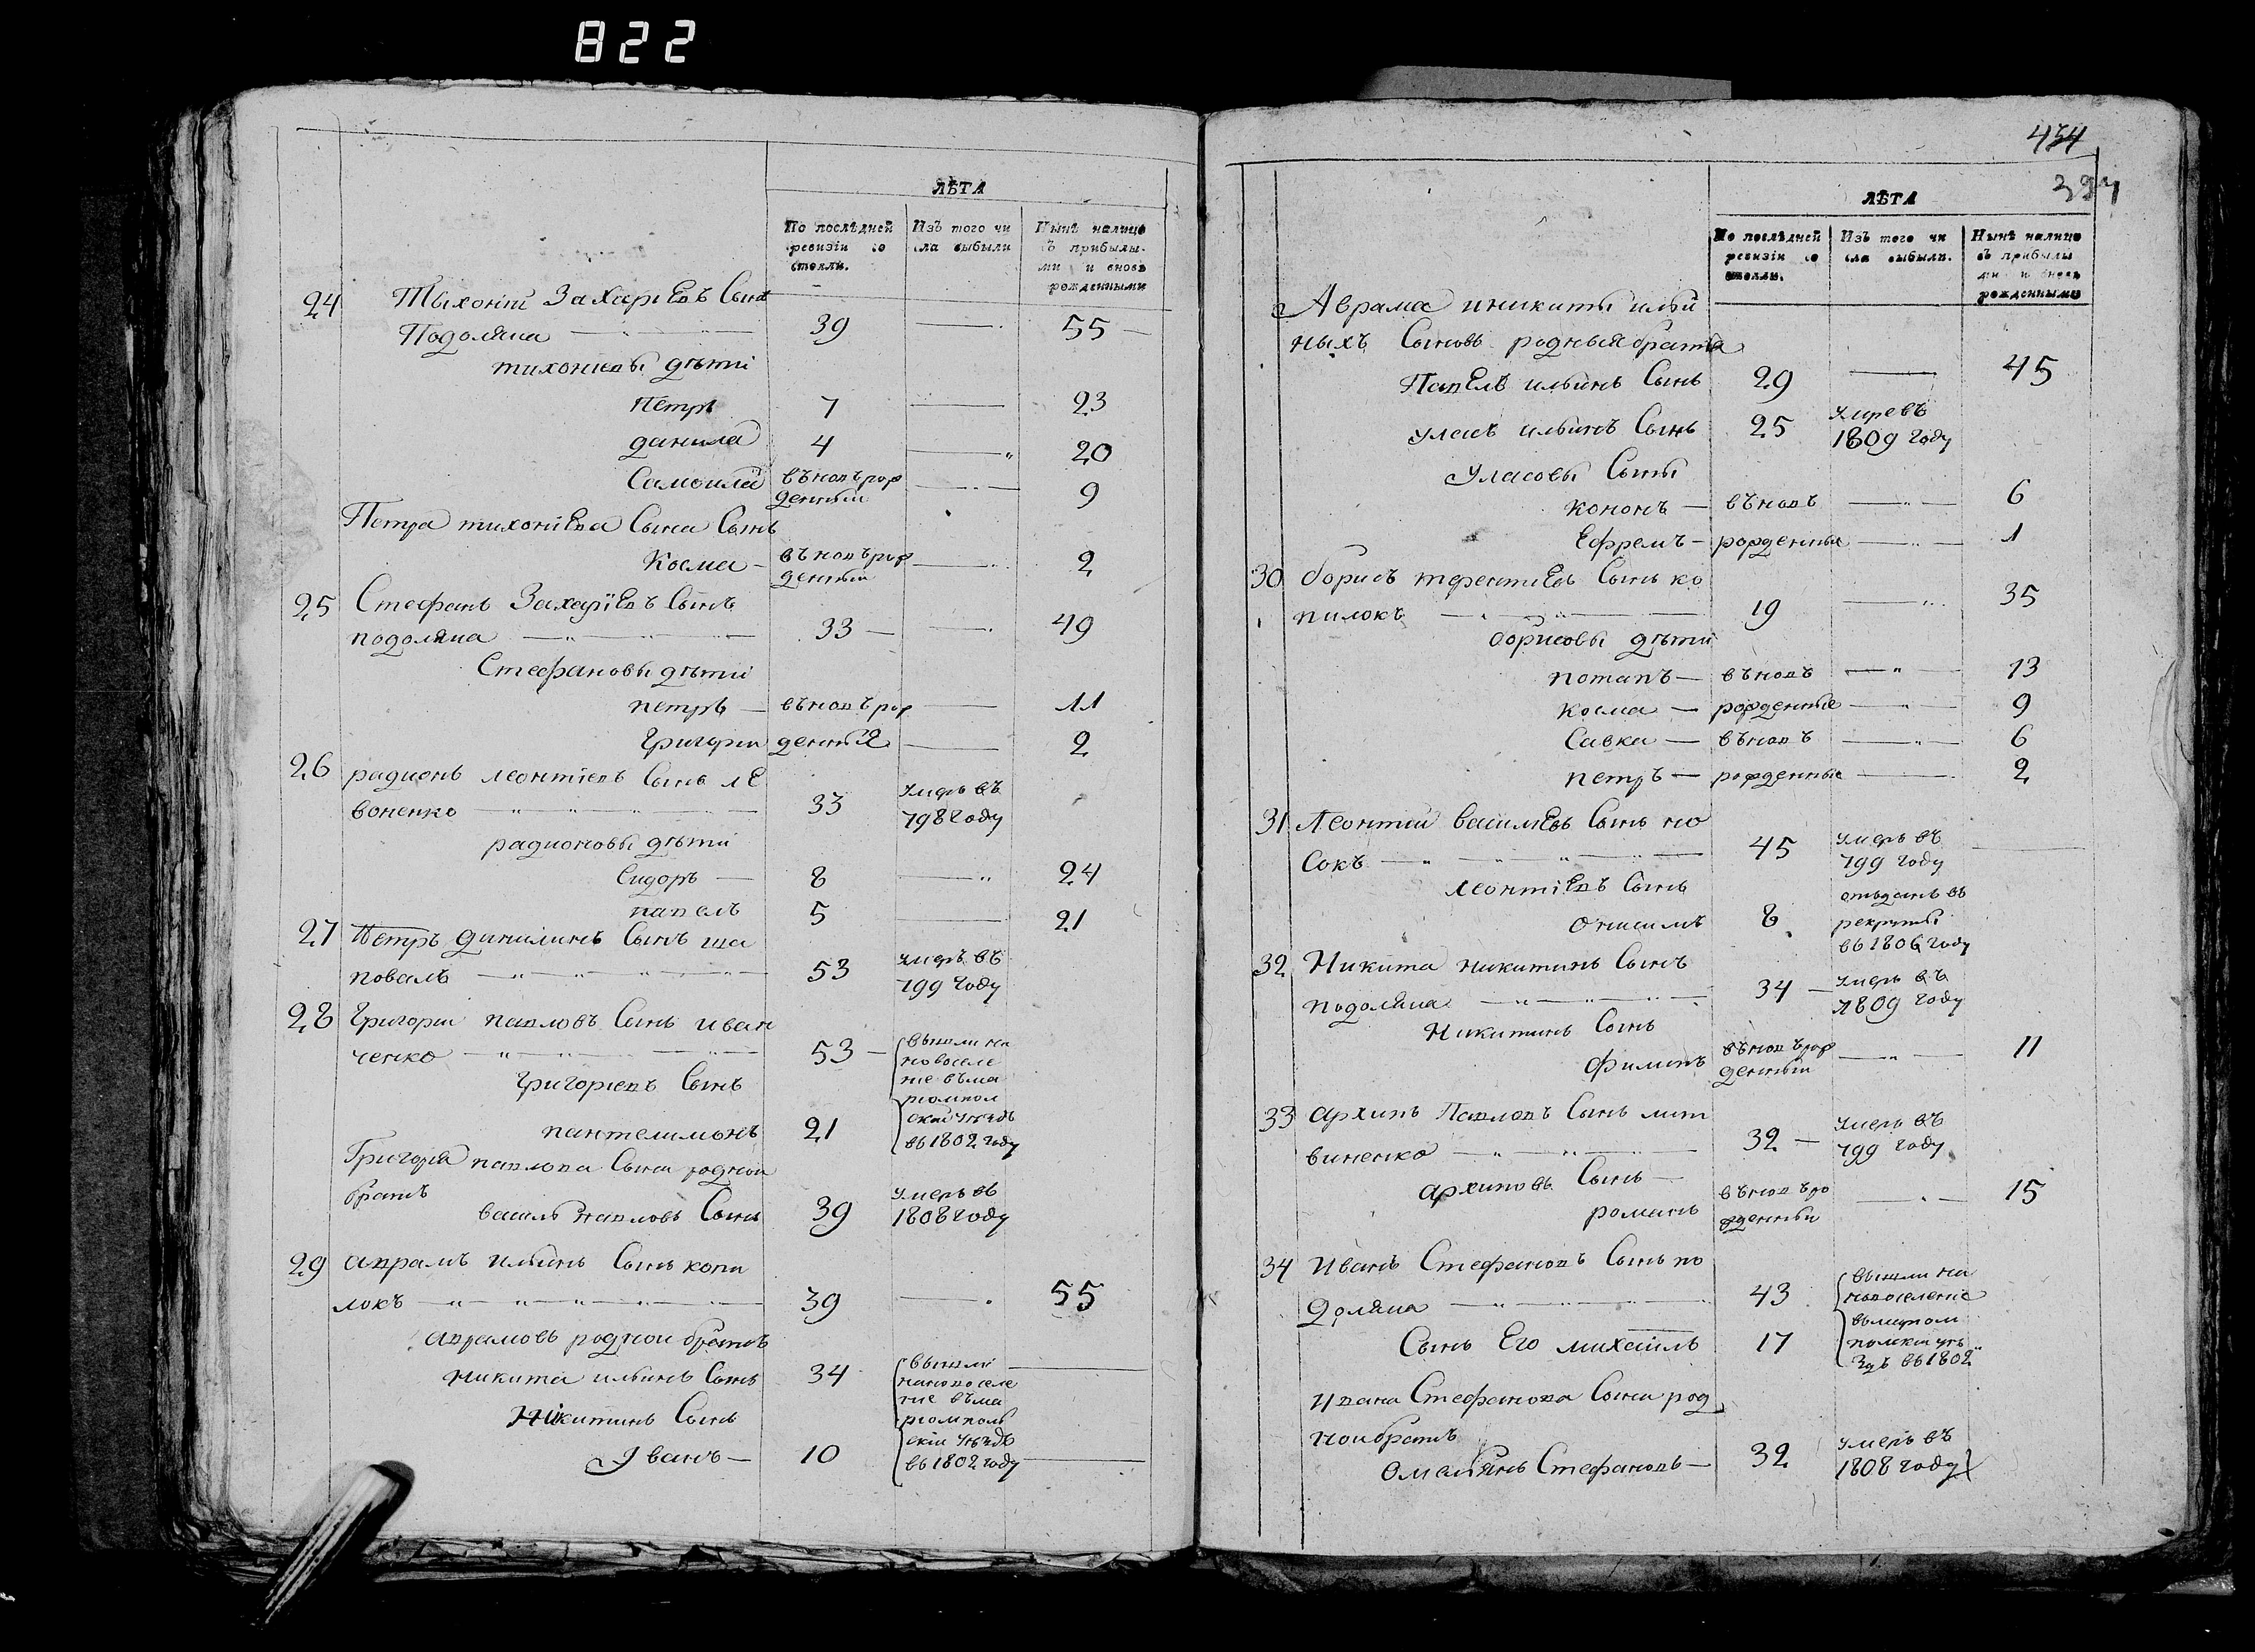 822
ЛѢТА
По послѣдней ревизіи со стояли.
Изъ того чи сла выбыли
Нынѣ налицо съ прибылы- ми и вновь рожденными
24 Тихоній Захаріевъ Сынъ
Подоляка 39 — 55
тихоніевы дѣти
Петръ 7 — 23
данила 4 — 20
Самойла въновъ рож денный — 9
Петра тихоніева Сына Сынъ
Косма въновъ рож денный — 2
25 Стефанъ Захаріевъ Сынъ
подоляка 33 — 49
Стефановы дѣти
петръ — въновъ рож — 11
Григори денныя — 2
26 радионъ леонтіевъ Сынъ ле
воненко 33 умеръ въ 798 году
радионовы дѣти
Сидоръ — 8 — 24
павелъ 5 — 21
27 Петръ данилинъ Сынъ ша
повалъ 53 умеръ въ 799 году
28 Григори павловъ Сынъ иван
ченко 53 — вышли на новоселе ние въма риопол
Григориевъ Сынъ
пантелимонъ 21 скій уѣздъ въ 1802 году
Григорія павлова Сына родной
братъ
василь павловъ Сынъ 39 умеръ въ 1808 году
29 аврамъ ильинъ Сынъ копи
локъ 39 — 55
аврамовъ родной братъ
никита ильинъ Сынъ 34 вышли нановоселе ние въма риополь
Никитинъ Сынъ
Иванъ — 10 скій уѣздъ въ 1802 году
434
394
ЛѢТА
По послѣдней ревизіи со стояли.
Изъ того чи сла выбыли.
Нынѣ налицо съ прибылы ми и вновь рожденными
Аврама иникиты ильи
ныхъ Сыновъ родныя братья
Павелъ ильинъ Сынъ 29 — 45
уласъ ильинъ Сынъ 25 умре въ 1809 году
Уласовы Сыны
кононъ — въновъ — 6
Ефремъ — рожденные — 1
30 борисъ терентиевъ Сынъ ко
пилокъ 19 — 35
борисовы дѣти
потапъ — въновъ — 13
косма — рожденные — 9
Савка — въновъ — 6
петръ — рожденные — 2
31 Леонтий василиевъ Сынъ но
сокъ 45 умеръ въ 799 году
леонтіевъ Сынъ
онисимъ 8 отъданъ въ рекруты въ 1806 году
32 Никита никитинъ Сынъ
подоляка 34 — умеръ въ 1809 году
Никитинъ Сынъ
филипъ въновъ рож денный — 11
33 архипъ Павловъ Сынъ лит
виненко 32 — умеръ въ 799 году
архиповъ Сынъ
романъ въновъ ро жденный — 15
34 Иванъ Стефановъ Сынъ по
доляка 43 вышли на новоселение
Сынъ Его михаилъ 17 уѣ здъ въ 1802
Ивана Стефанова Сына род
ной братъ
Омельянъ Стефановъ — 32 умеръ въ 1808 году